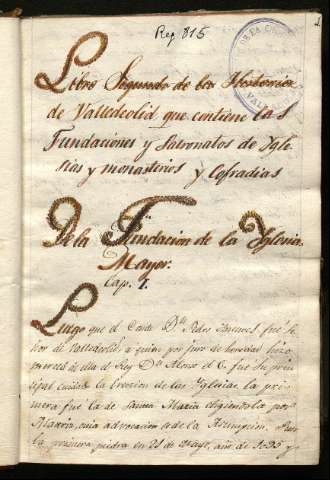 Rep. 815
Libro Segundo de las Historias
de Valledolid que contiene las
Fundaciones y Patronatos de Ygle
sias y monasterios y Cofradias
De la Fundación de la Yglesia
Mayor.
Cap. 1.
Luego que el Conde Dn. Pedro fue Se
ñor de Valledolid, a quien por juro de heredad hizo
merced de ella el Rey Dn. Alonso el 6. fue su prin
cipal cuidado la de las Yglesias la pri
mera fue la de Santa Maria eligiendola por
cuia advocacion es de la Asumpcion.
la primera piedra en 21 de Mayo, año de 1095 y